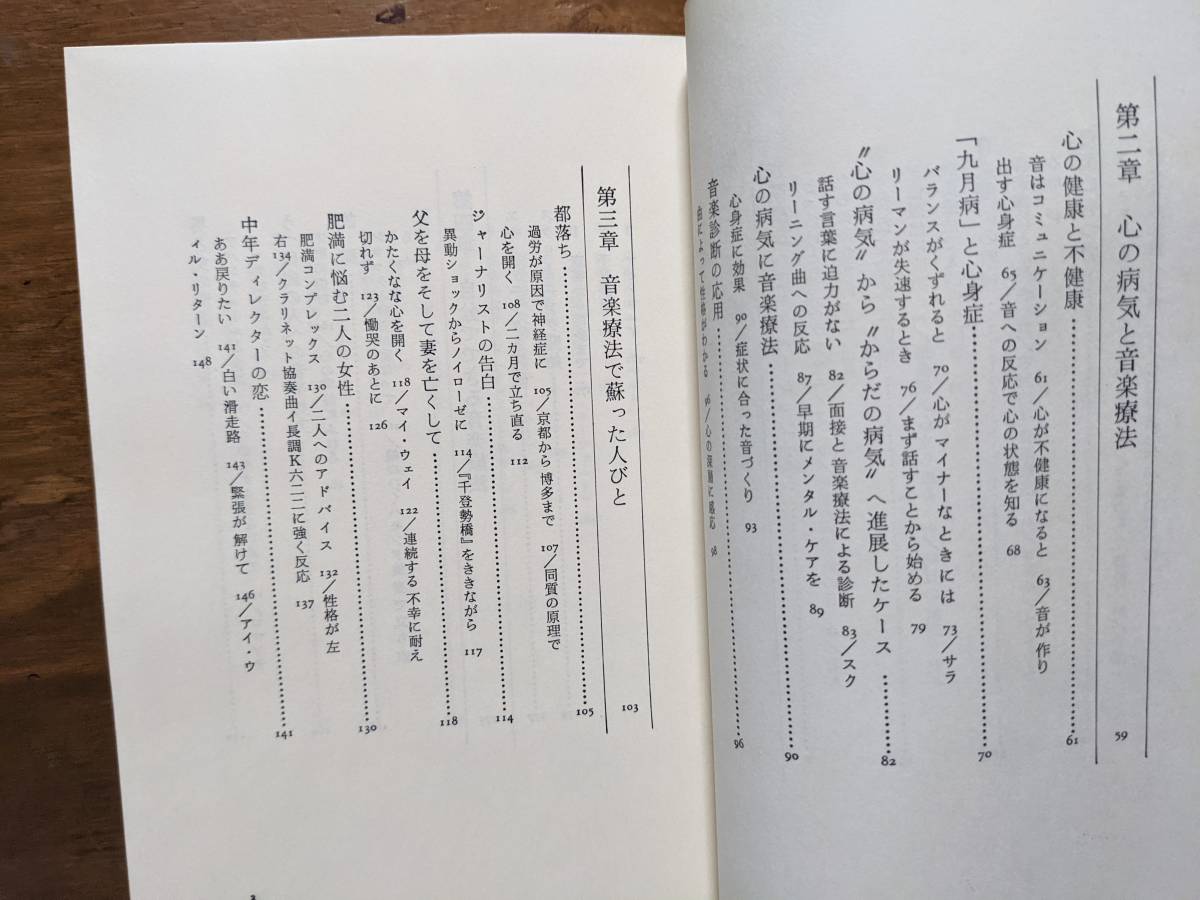 第二章 心の病気と音楽療法 59
心の健康と不健康 61
音はコミュニケーション 61/心が不健康になると 63/音が作り
出す心身症 65/音への反応で心の状態を知る 68
「九月病」と心身症 70
バランスがくずれると 70/心がマイナーなときには 73/サラ
リーマンが失速するとき 76/まず話すことから始める 79
〝心の病気〟から〝からだの病気〟へ進展したケース 82
話す言葉に迫力がない 82/面接と音楽療法による診断 83/スク
リーニング曲への反応 87/早期にメンタル・ケアを 89
心の病気に音楽療法 90
心身症に効果 90/症状に合った音づくり 93
音楽診断の応用 96
曲によって性格がわかる 96/心の深層に感応 98
第三章 音楽療法で蘇った人びと 103
都落ち 105
過労が原因で神経症に 105/京都から博多まで 107/同質の原理で
心を開く 108/二カ月で立ち直る 112
ジャーナリストの告白 114
異動ショックからノイローゼに 114/『千登勢橋』をききながら 117
父を母をそして妻を亡くして 118
かたくなな心を開く 118/マイ・ウェイ 122/連続する不幸に耐え
切れず 123/慟哭のあとに 126
肥満に悩む二人の女性 130
肥満コンプレックス 130/二人へのアドバイス 132/性格が左
右 134/クラリネット協奏曲イ長調K六二二に強く反応 137
中年ディレクターの恋 141
ああ戻りたい 141/白い滑走路 143/緊張が解けて 146/アイ・ウ
ィル・リターン 148
3